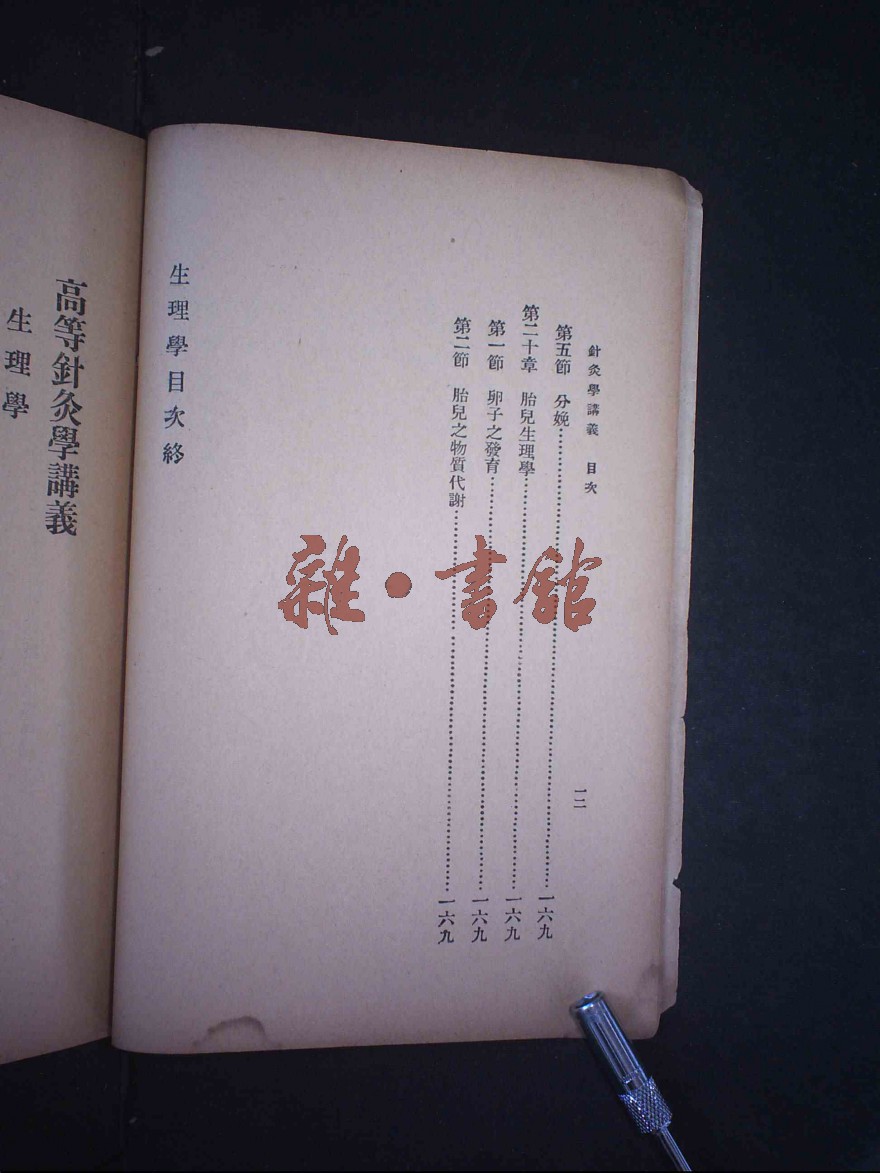 針灸學講義 目次
一二
第五節 分娩……一六九
第二十章 胎兒生理學……一六九
第一節 卵子之發育……一六九
第二節 胎兒之物質代謝……一六九
生理學目次終
高等針灸學講義
生理學
雜·書館